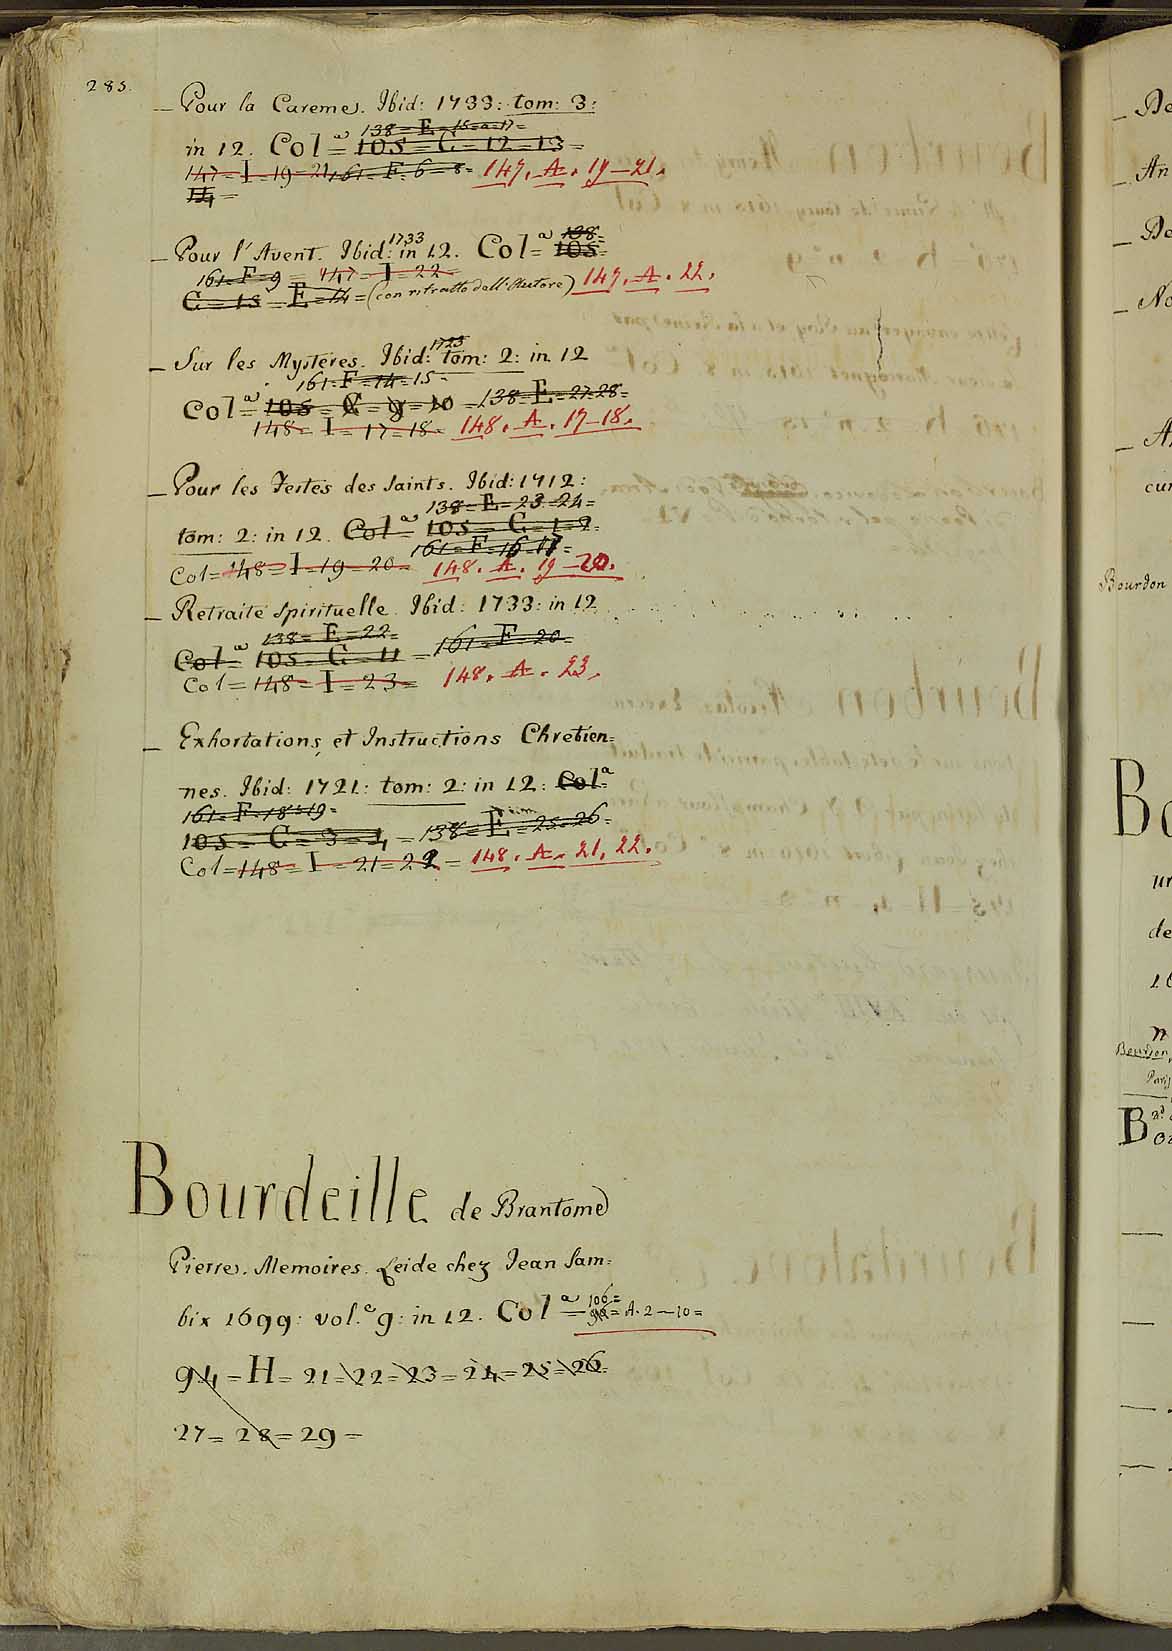 285.
_ Pour la Careme. Ibid: 1733: tom: 3:
138 = E = 15 = a = 17 =
in 12. Col.ª = 105 = C = 12 = 13 =
147 = I = 19 = 21 161 = F = 6 = 8 = 147. A. 19-21.
_ Pour l'Avent. Ibid: 1733 in 12. Col.ª 138 = 105 =
161 = F = 9 = 147 = I = 22 =
C = 15 = E = 14 = (con ritratto dell'Autore) 147. A. 22.
_ Sur les Mystères. Ibid: 1723 tom: 2: in 12
161 = F = 14 = 15 =
Col.ª = 105 = C = 9 = 10 = 138 = E = 27 = 28 =
148 = I = 17 = 18 = 148. A. 17-18.
_ Pour les Festes des Saints. Ibid: 1712:
138 = E = 23 = 24 =
tom: 2: in 12. Col.ª = 105 = C = 1 = 2 =
161 = F = 16 = 17 =
Col = 148 = I = 19 = 20 = 148. A. 19-20.
_ Retraite Spirituelle. Ibid: 1733: in 12
138 = E = 22 =
Col.ª = 105 = C = 11 = 161 = F = 20 =
Col = 148 = I = 23 = 148. A. 23.
_ Exhortations, et Instructions Chretien=
nes. Ibid: 1721: tom: 2: in 12: Col.ª
161 = F = 18 = 19 =
105 = C = 3 = 4 = 138 = E = 25 = 26 =
Col = 148 = I = 21 = 22 = 148. A. 21. 22.
Bourdeille de Brantome
Pierre. Memoires. Leide chez Jean Sam=
bix 1699: vol.e 9: in 12. Col.ª = 106 = A. 2 - 10 =
94 = H = 21 = 22 = 23 = 24 = 25 = 26 =
27 = 28 = 29 =
Bourdon